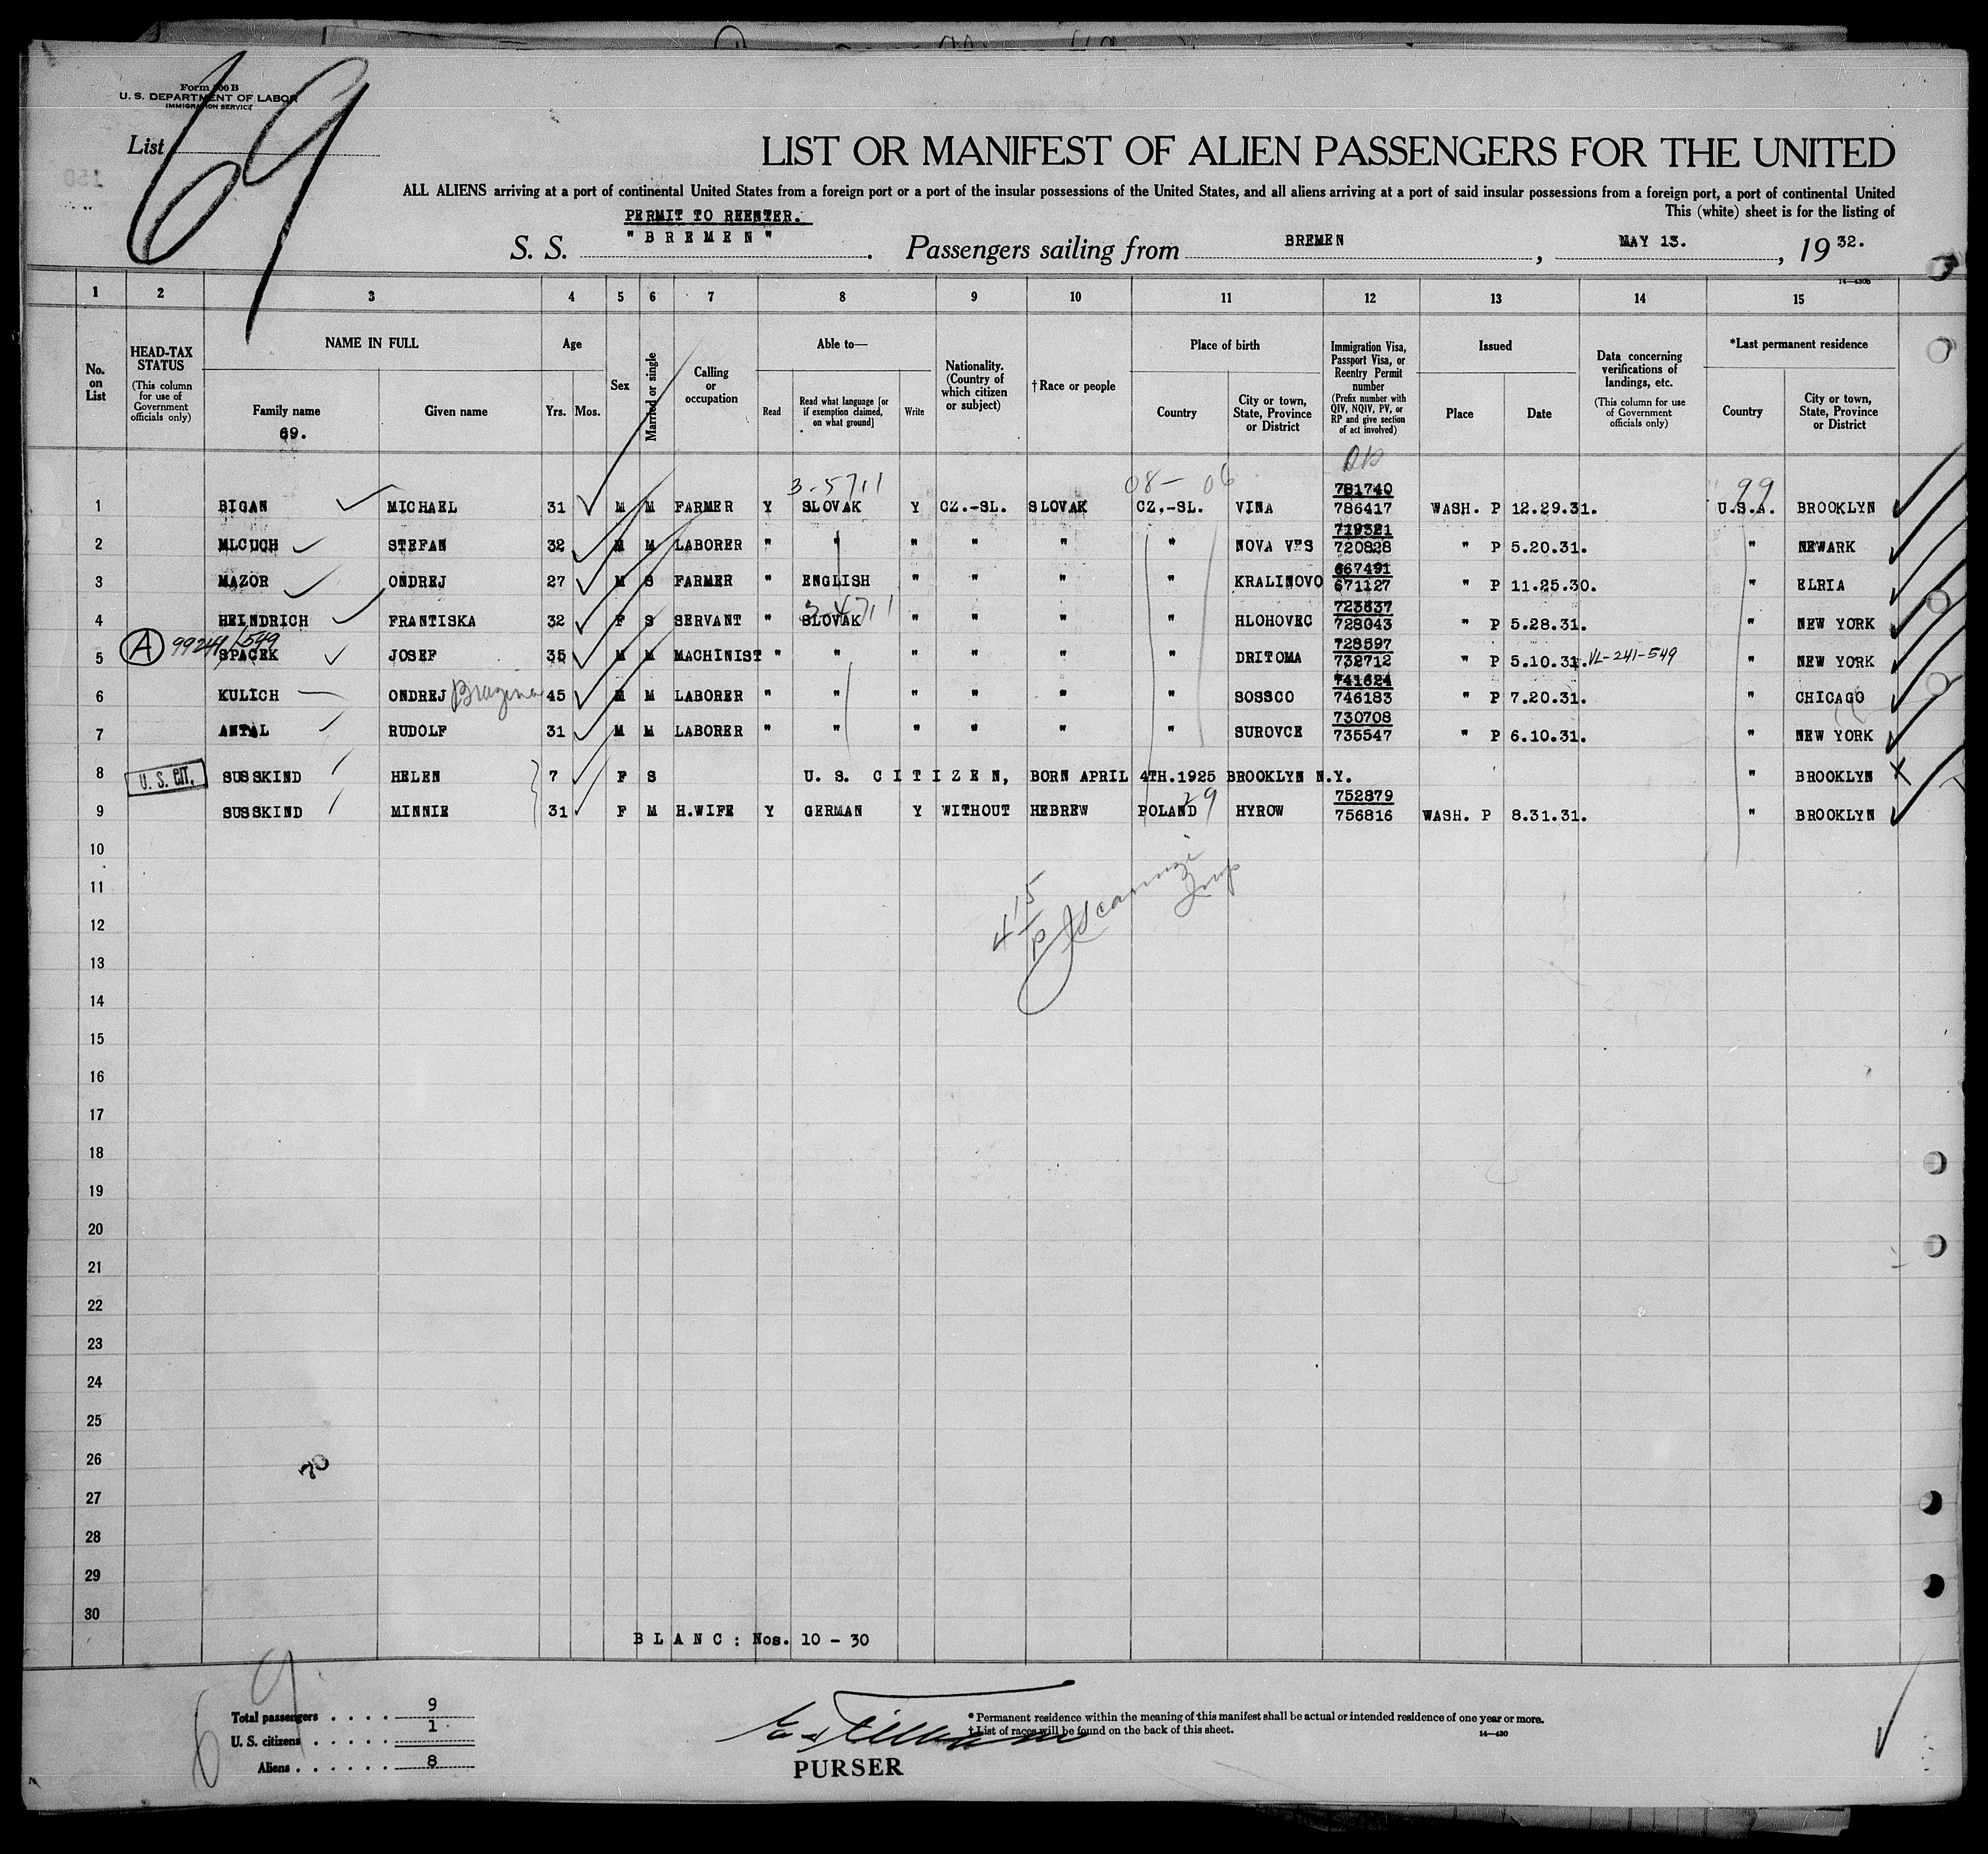 Form 500 B
U. S. DEPARTMENT OF LABOR
IMMIGRATION SERVICE
List 69
LIST OR MANIFEST OF ALIEN PASSENGERS FOR THE UNITED
ALL ALIENS arriving at a port of continental United States from a foreign port or a port of the insular possessions of the United States, and all aliens arriving at a port of said insular possessions from a foreign port, a port of continental United
This (white) sheet is for the listing of
PERMIT TO REENTER.
S. S. "BREMEN". Passengers sailing from BREMEN, MAY 13., 19 32.
14—430B
1 2 3 4 5 6 7 8 9 10 11 12 13 14 15
No. on List
HEAD-TAX STATUS (This column for use of Government officials only)
NAME IN FULL Family name Given name
69.
Age Yrs. Mos.
Sex
Married or single
Calling or occupation
Able to— Read Read what language [or if exemption claimed, on what ground] Write
Nationality. (Country of which citizen or subject)
†Race or people
Place of birth Country City or town, State, Province or District
Immigration Visa, Passport Visa, or Reentry Permit number (Prefix number with QIV, NQIV, PV, or RP and give section of act involved)
Issued Place Date
Data concerning verifications of landings, etc. (This column for use of Government officials only)
*Last permanent residence Country City or town, State, Province or District
3-5711 08— 06 99
1 BIGAN MICHAEL 31 M M FARMER Y SLOVAK Y CZ.-SL. SLOVAK CZ,-SL. VINA 781740 786417 WASH. P 12.29.31. U.S.A. BROOKLYN
2 MLCUCH STEFAN 32 M M LABORER " " " " " " NOVA VES 719321 720828 " P 5.20.31. " NEWARK
3 MAZOR ONDREJ 27 M S FARMER " ENGLISH " " " " KRALINOVO 667491 671127 " P 11.25.30. " ELRIA
4 HEINDRICH FRANTISKA 32 F S SERVANT " SLOVAK " " " " HLOHOVEC 723637 728043 " P 5.28.31. " NEW YORK
A 99241/549
5 SPACEK JOSEF 35 M M MACHINIST " " " " " " DRITOMA 728597 732712 " P 5.10.31. VL-241-549 " NEW YORK
6 KULICH ONDREJ 45 M M LABORER " " " " " " SOSSCO 741624 746183 " P 7.20.31. " CHICAGO
7 ANTAL RUDOLF 31 M M LABORER " " " " " " SUROVCE 730708 735547 " P 6.10.31. " NEW YORK
8 U. S. CIT. SUSSKIND HELEN 7 F S U. S. CITIZEN, BORN APRIL 4TH.1925 BROOKLYN N.Y. " BROOKLYN
9 SUSSKIND MINNIE 31 F M H.WIFE Y GERMAN Y WITHOUT HEBREW POLAND 29 HYROW 752879 756816 WASH. P 8.31.31. " BROOKLYN
10
11
12
13
14
15
16
17
18
19
20
21
22
23
24
25
26
27
28
29
30
BLANC: Nos. 10 - 30
69
Total passengers . . . . 9
U. S. citizens . . . . . 1
Aliens . . . . . . 8
PURSER
*Permanent residence within the meaning of this manifest shall be actual or intended residence of one year or more.
†List of races will be found on the back of this sheet.
14—430